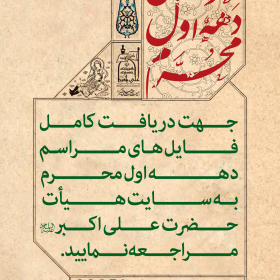 دهه اول
محرم
جهت دریافت کامل
فایل‌های مراسم
دهه اول محرم
به سایت هیأت
حضرت علی اکبر
مراجعه نمایید.